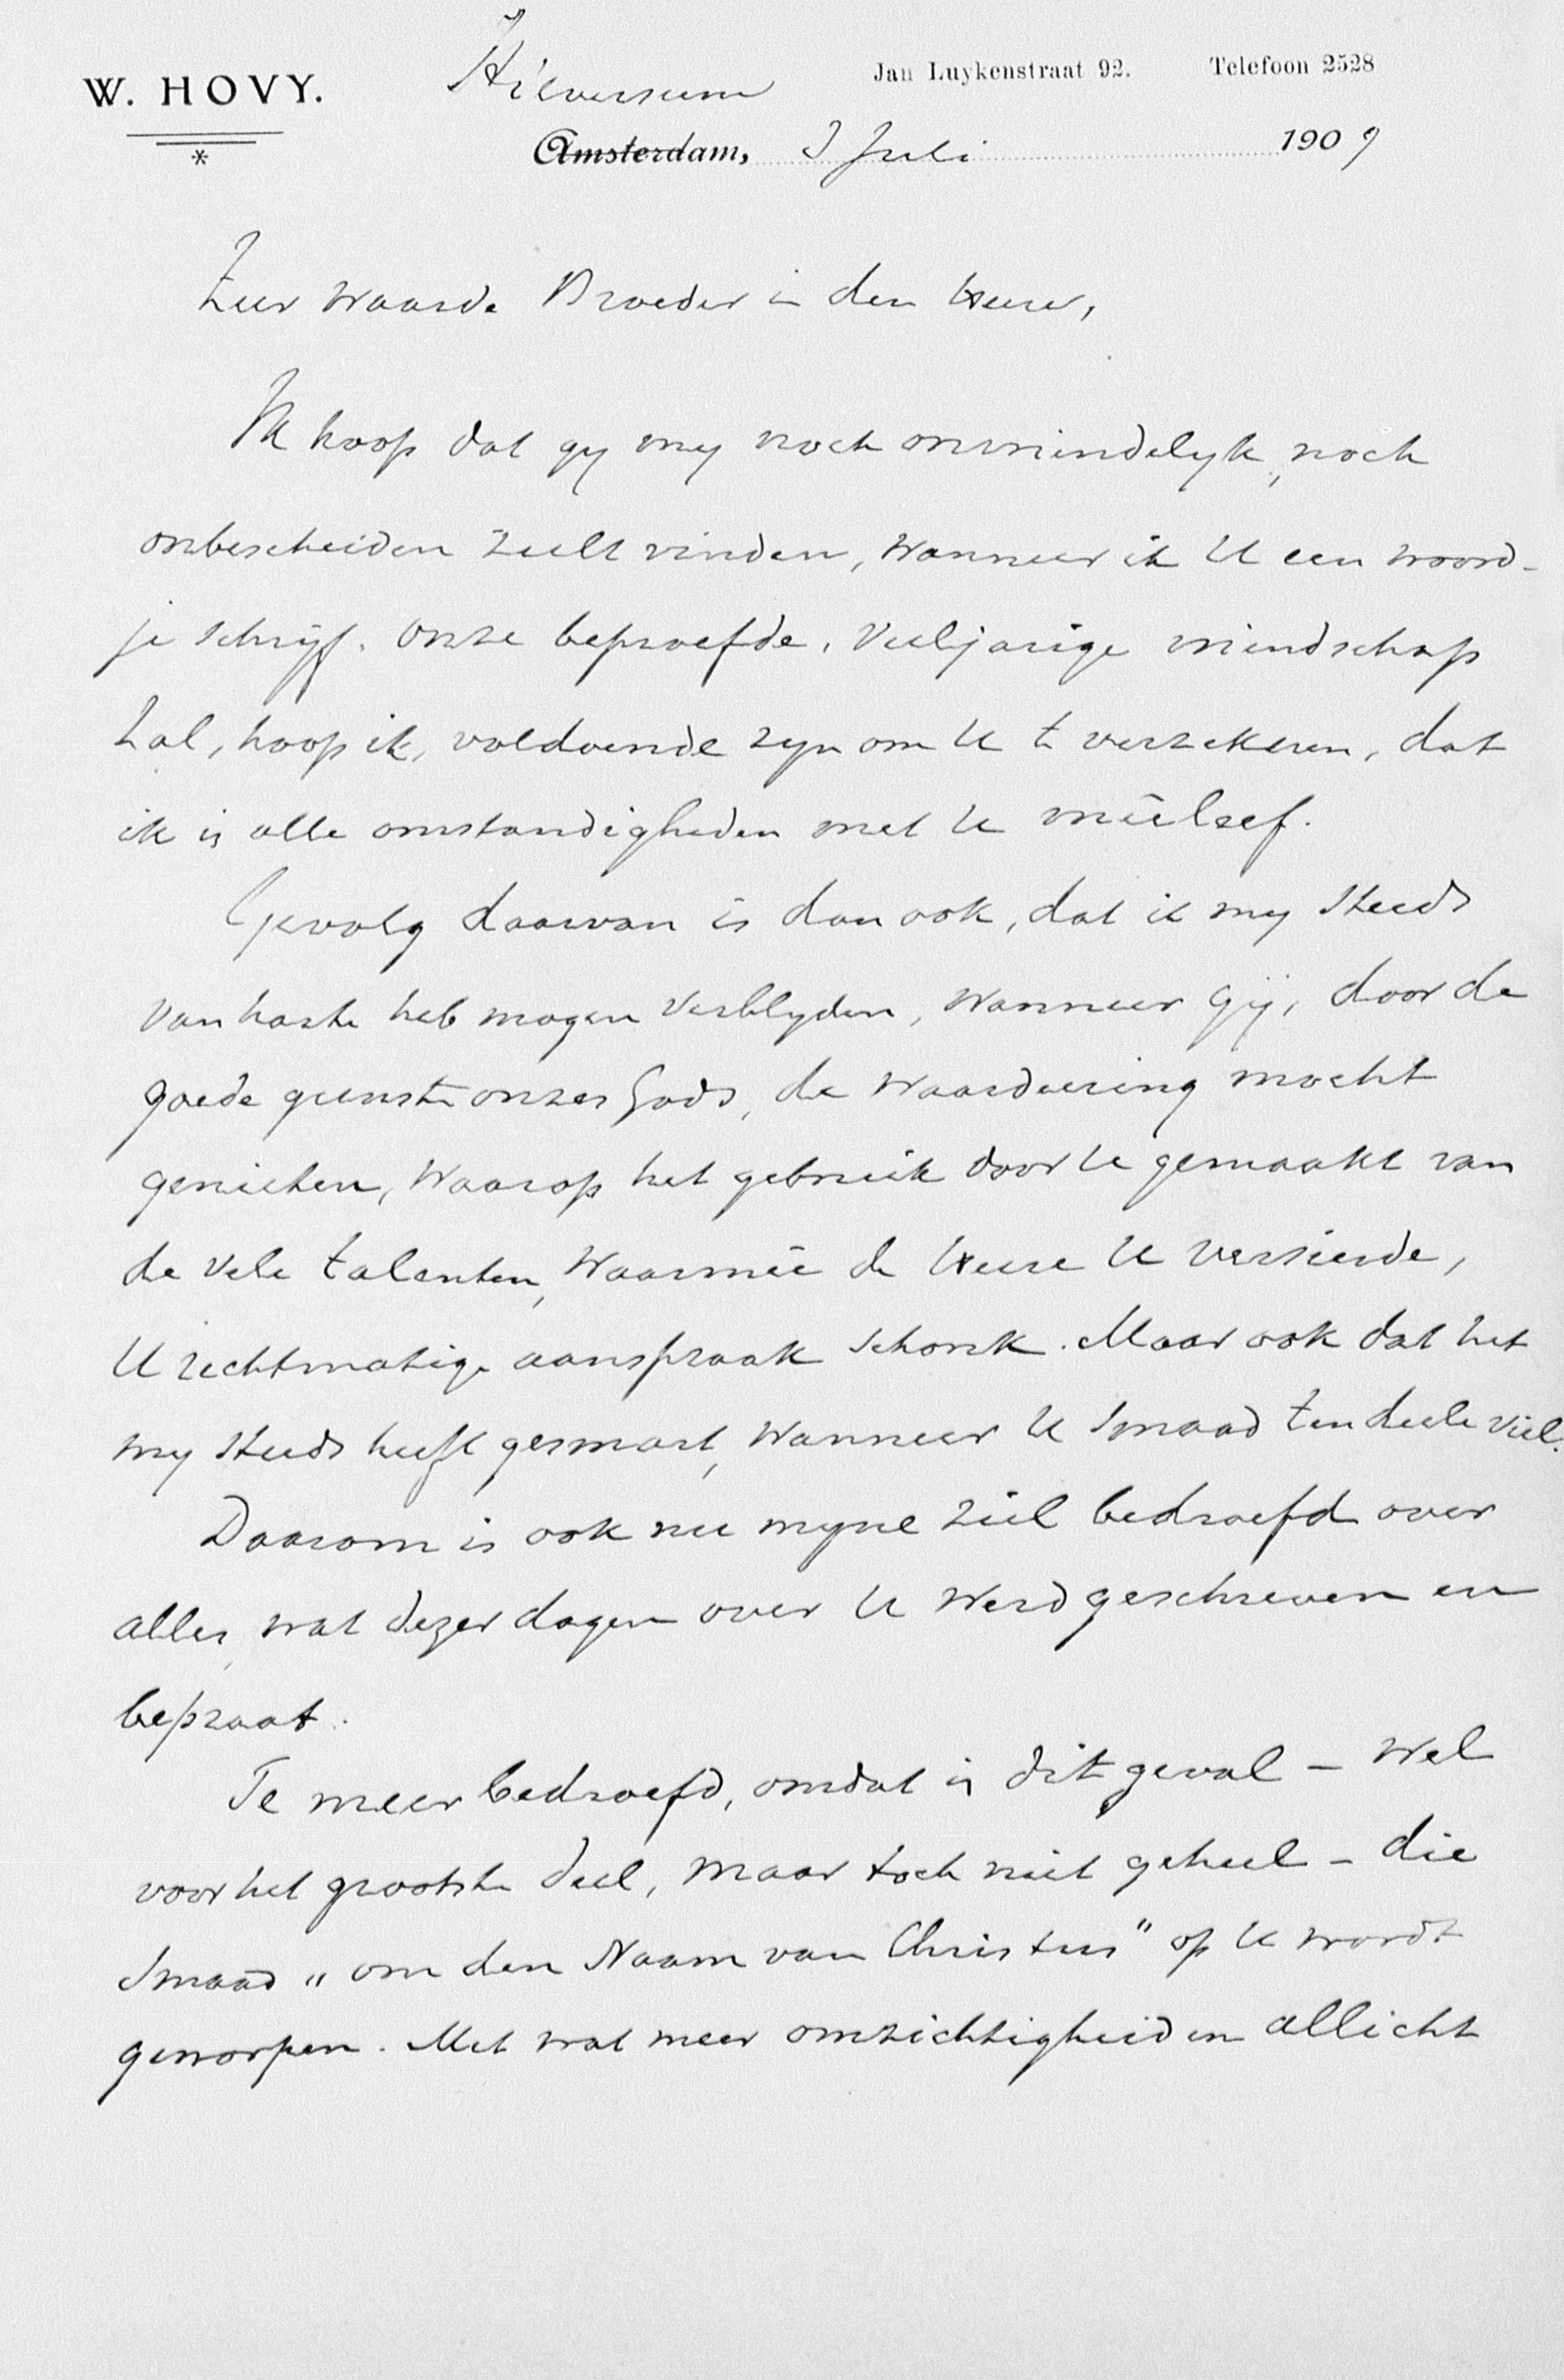 W. HOVY.
Jan Luykenstraat 92. Telefoon 2528
Hilversum
Amsterdam, 3 Juli 1909
Zeer waarde Broeder in den Heere,
Ik hoop dat gy my noch onvriendelyk, noch
onbescheiden zult vinden, wanneer ik U een woord-
je schryf. Onze beproefde, veeljarige vriendschap
zal, hoop ik, voldoende zyn om U te verzekeren, dat
ik in alle omstandigheden met U meêleef.
Gevolg daarvan is dan ook, dat ik my steeds
van harte heb mogen verblyden, wanneer Gij, door de
goede gunste onzes Gods, de waardeering mocht
genieten, waarop het gebruik door U gemaakt van
de vele talenten, waarmeê de Heere U versierde,
U rechtmatige aanspraak schonk. Maar ook dat het
my steeds heeft gesmart, wanneer U smaad ten deele viel.
Daarom is ook nu myne ziel bedroefd over
alles, wat dezer dagen over U werd geschreven en
bepraat.
Te meer bedroefd, omdat in dit geval – wel
voor het grootste deel, maar toch niet geheel – die
smaad "om den Naam van Christus" op U wordt
geworpen. Met wat meer omzichtigheid en allicht